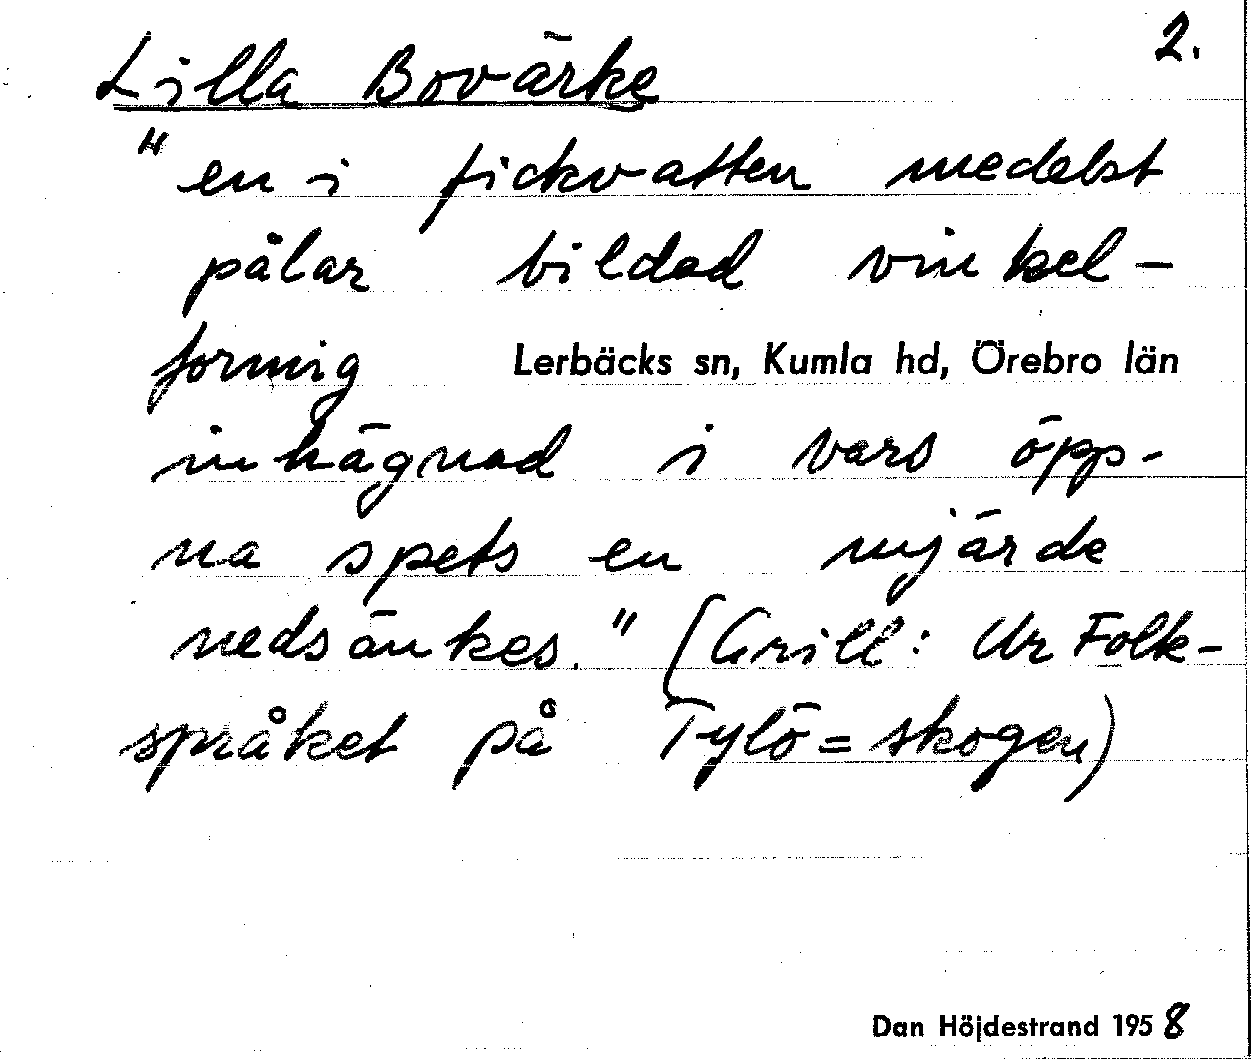 2.
Lilla Bovärke
"en i fickvatten medelst
pålar bildad vinkel-
formig Lerbäcks sn, Kumla hd, Örebro län
inhägnad i vars öpp-
na spets en mjärde
nedsänkes." (Grill: Ur Folk-
språket på Tylö=skogen)
Dan Höjdestrand 1958